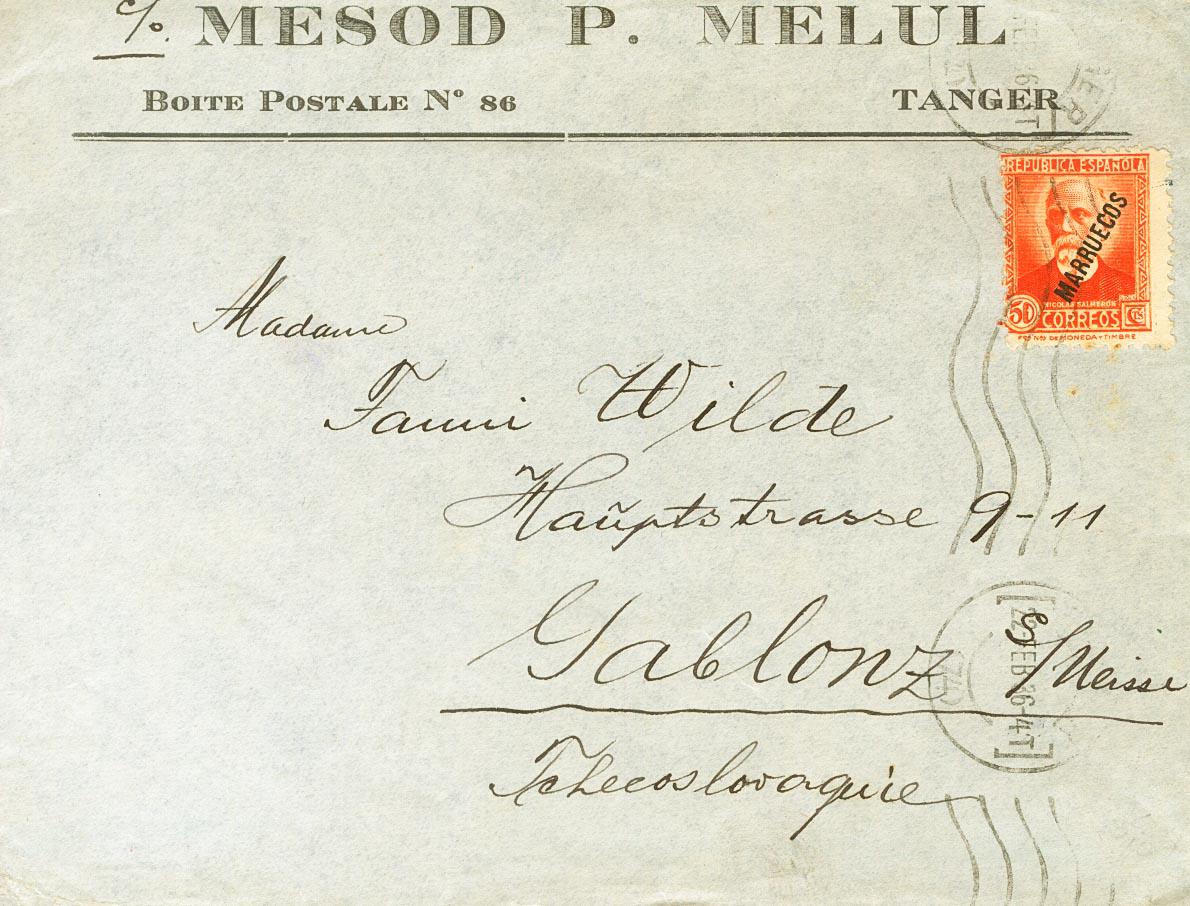 c/o. MESOD P. MELUL
BOITE POSTALE Nº 86 TANGER
REPUBLICA ESPAÑOLA
MARRUECOS
NICOLAS SALMERON
50 CORREOS CTS
FCA NAL DE MONEDA Y TIMBRE
Madame
Fanni Wilde
Hauptstrasse 9-11
Gablonz a/Neisse
Tchecoslovaquie
22 FEB 36-4T